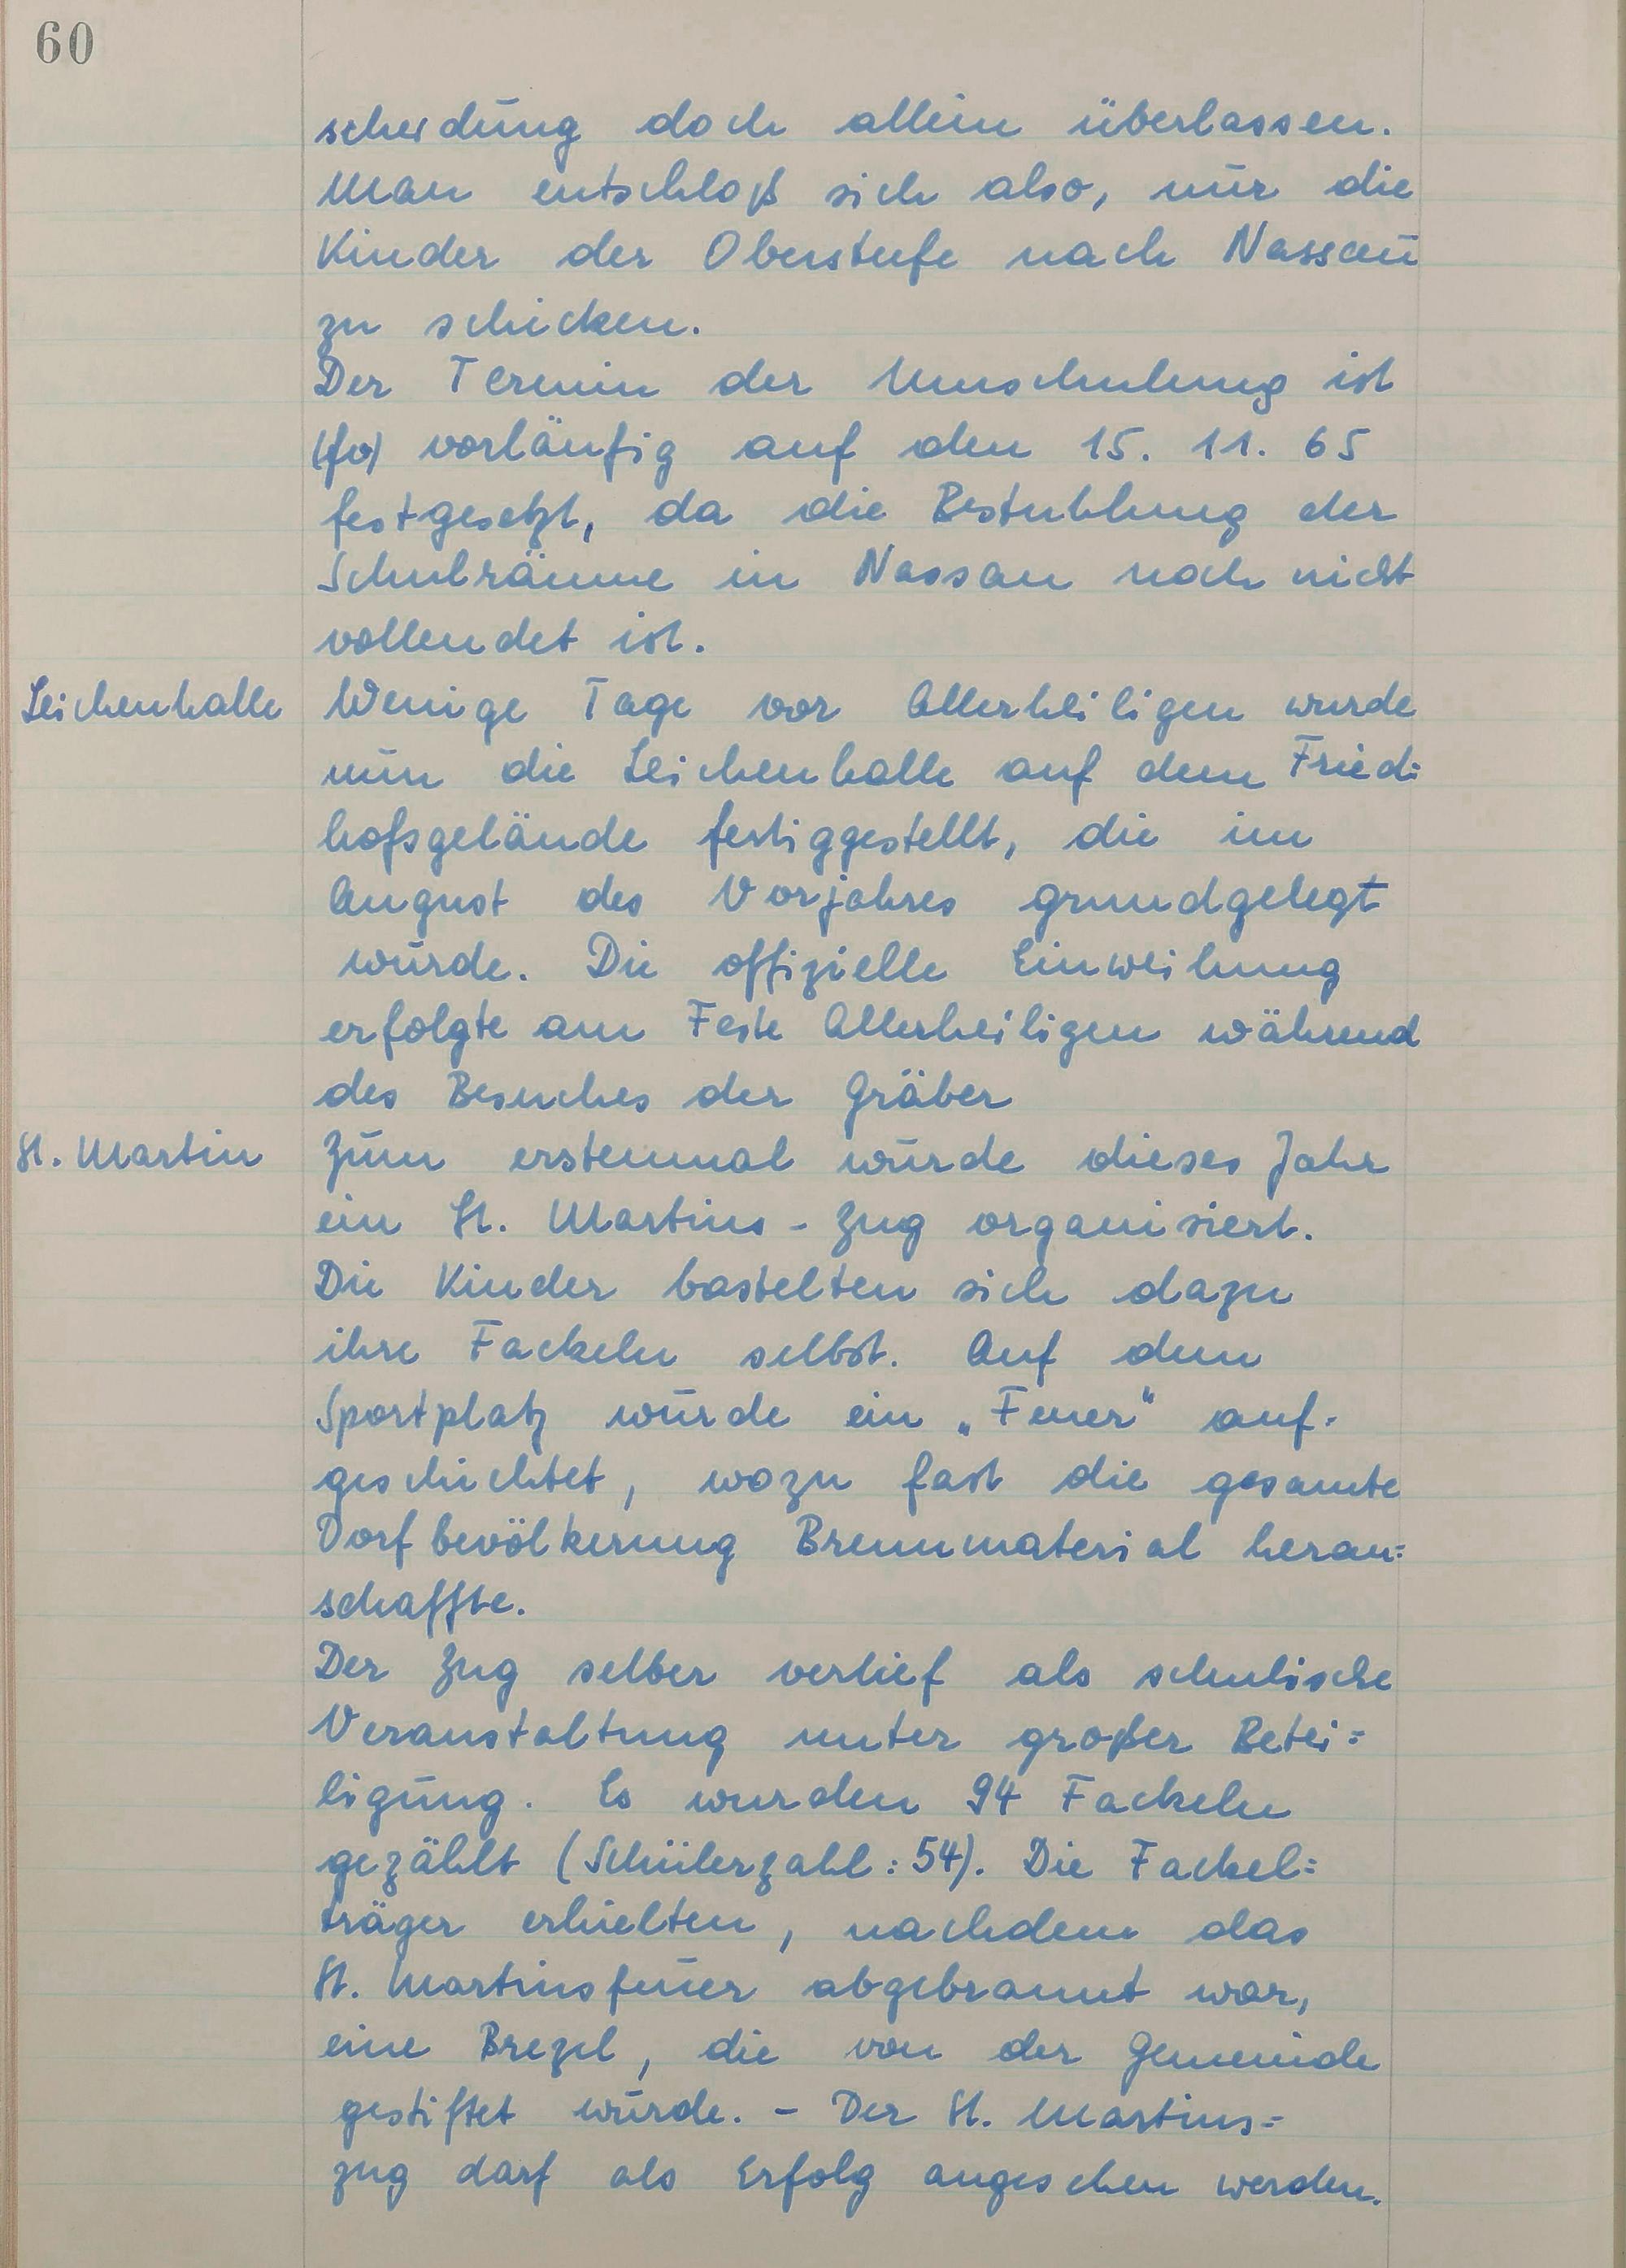 60
scheidung doch allein überlassen.
Man entschloß sich also, nur die
Kinder der Oberstufe nach Nassau
zu schicken.
Der Termin der Umschulung ist
(fo) vorläufig auf den 15. 11. 65
festgesetzt, da die Bestuhlung der
Schulräume in Nassau noch nicht
vollendet ist.
Leichenhalle Wenige Tage vor Allerheiligen wurde
nun die Leichenhalle auf dem Fried=
hofsgelände fertiggestellt, die im
August des Vorjahres grundgelegt
wurde. Die offizielle Einweihung
erfolgte am Feste Allerheiligen während
des Besuches der Gräber
St. Martin Zum erstenmal wurde dieses Jahr
ein St. Martins - Zug organisiert.
Die Kinder bastelten sich dazu
ihre Fackeln selbst. Auf dem
Sportplatz wurde ein „Feuer“ auf-
geschichtet, wozu fast die gesamte
Dorfbevölkerung Brennmaterial heran=
schaffte.
Der Zug selber verlief als schulische
Veranstaltung unter großer Betei=
ligung. Es wurden 94 Fackeln
gezählt (Schülerzahl: 54). Die Fackel=
träger erhielten, nachdem das
St. Martinsfeuer abgebrannt war,
eine Brezel, die von der Gemeinde
gestiftet wurde. - Der St. Martins=
zug darf als Erfolg angesehen werden.